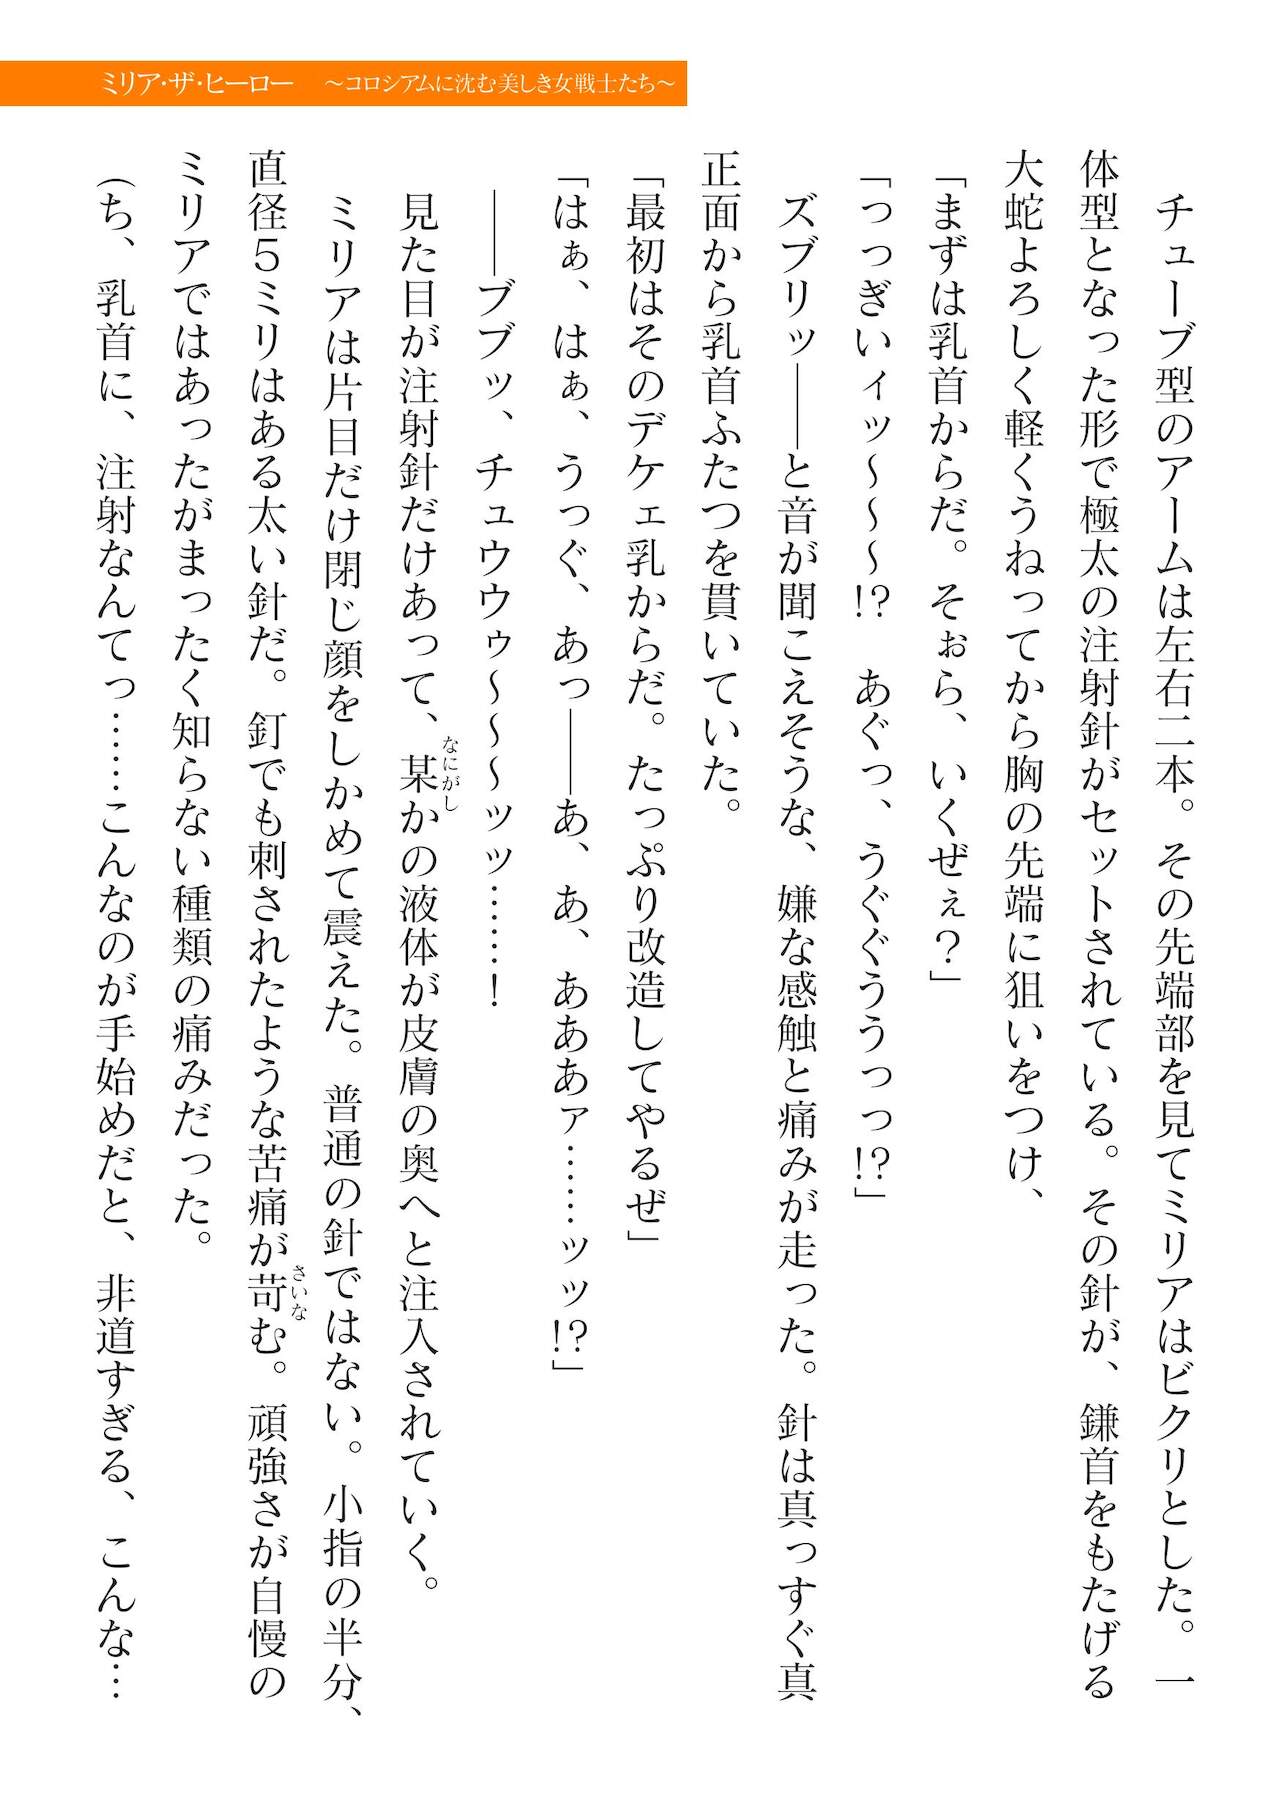 ミリア・ザ・ヒーロー　～コロシアムに沈む美しき女戦士たち～
　チューブ型のアームは左右二本。その先端部を見てミリアはビクリとした。一
体型となった形で極太の注射針がセットされている。その針が、鎌首をもたげる
大蛇よろしく軽くうねってから胸の先端に狙いをつけ、
「まずは乳首からだ。そぉら、いくぜぇ？」
「っっぎいィッ～～～!?　あぐっ、うぐぐううっっ!?」
　ズブリッ――と音が聞こえそうな、嫌な感触と痛みが走った。針は真っすぐ真
正面から乳首ふたつを貫いていた。
「最初はそのデケェ乳からだ。たっぷり改造してやるぜ」
「はぁ、はぁ、うっぐ、あっ――あ、あ、あああァ……ッッ!?」
　――ブブッ、チュウウゥ～～～ッッ……！
　見た目が注射針だけあって、某かの液体が皮膚の奥へと注入されていく。
なにがし
　ミリアは片目だけ閉じ顔をしかめて震えた。普通の針ではない。小指の半分、
直径５ミリはある太い針だ。釘でも刺されたような苦痛が苛む。頑強さが自慢の
さいな
ミリアではあったがまったく知らない種類の痛みだった。
（ち、乳首に、注射なんてっ……こんなのが手始めだと、非道すぎる、こんな…